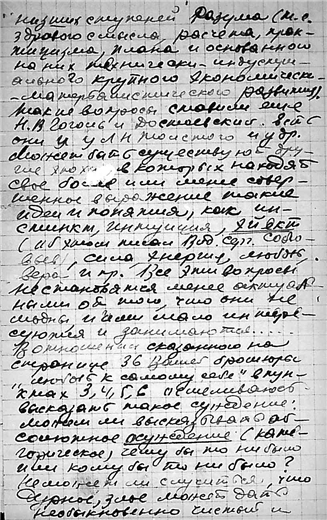 низших ступеней разума (т.е.
здравого смысла, расчета, прак-
тицизма, плана и основанного
на них технически-индустри-
ального крупного экономическо-
-материалистического развития)
такие вопросы ставили еще
Н.В. Гоголь и Достоевский. Есть
они и у Л.Н. Толстого и у др.
Может быть существуют дру-
гие эпохи в которых находят
свое более или менее совер-
шенное выражение такие
идеи и понятия, как ин-
стинкт, интуиция,
(об этом писал Вл. Сер. Соло
вьев), сила энергии, любовь,
вера и пр. Все эти вопросы
не становятся менее актуаль
ными от того, что они не
модны и ими мало интере-
суются и занимаются.....
В отношении сказанного на
странице 36 Вашей брошюры
"любовь к самому себе" в пун-
ктах 3, 4, 5, 6
высказать такое суждение:
можем ли высказывать аб-
солютное осуждение (кате-
горическое, чему бы то ни было
или кому бы то ни было?
Не может ли случиться, что
черное, злое может дать
необыкновенно чистый и